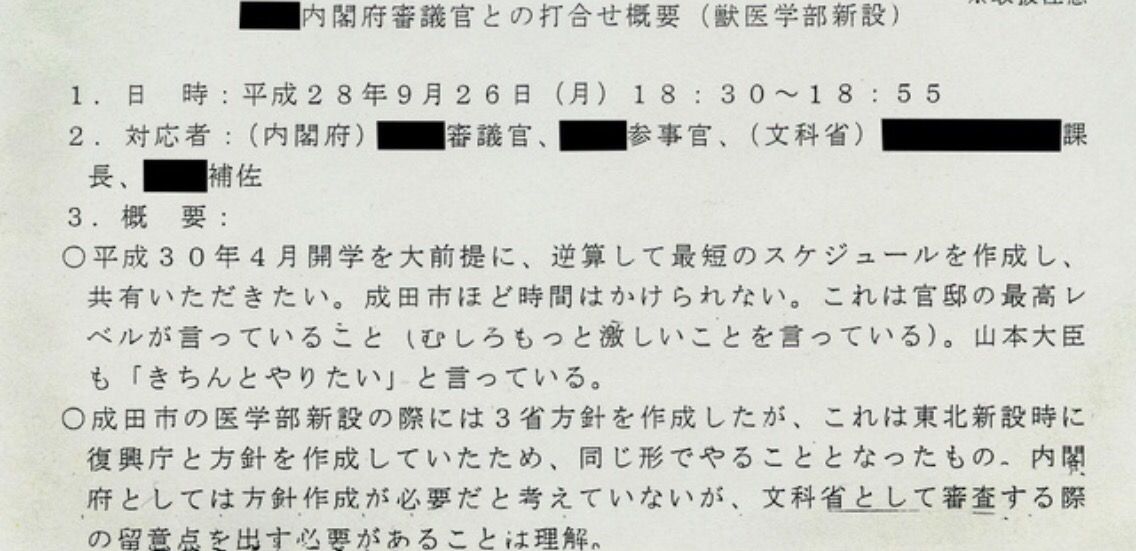 内閣府審議官との打合せ概要（獣医学部新設）
１．日　時：平成２８年９月２６日（月）１８：３０～１８：５５
２．対応者：（内閣府）審議官、参事官、（文科省）課
長、補佐
３．概　要：
○平成３０年４月開学を大前提に、逆算して最短のスケジュールを作成し、
共有いただきたい。成田市ほど時間はかけられない。これは官邸の最高レ
ベルが言っていること（むしろもっと激しいことを言っている）。山本大臣
も「きちんとやりたい」と言っている。
○成田市の医学部新設の際には３省方針を作成したが、これは東北新設時に
復興庁と方針を作成していたため、同じ形でやることとなったもの。内閣
府としては方針作成が必要だと考えていないが、文科省として審査する際
の留意点を出す必要があることは理解。